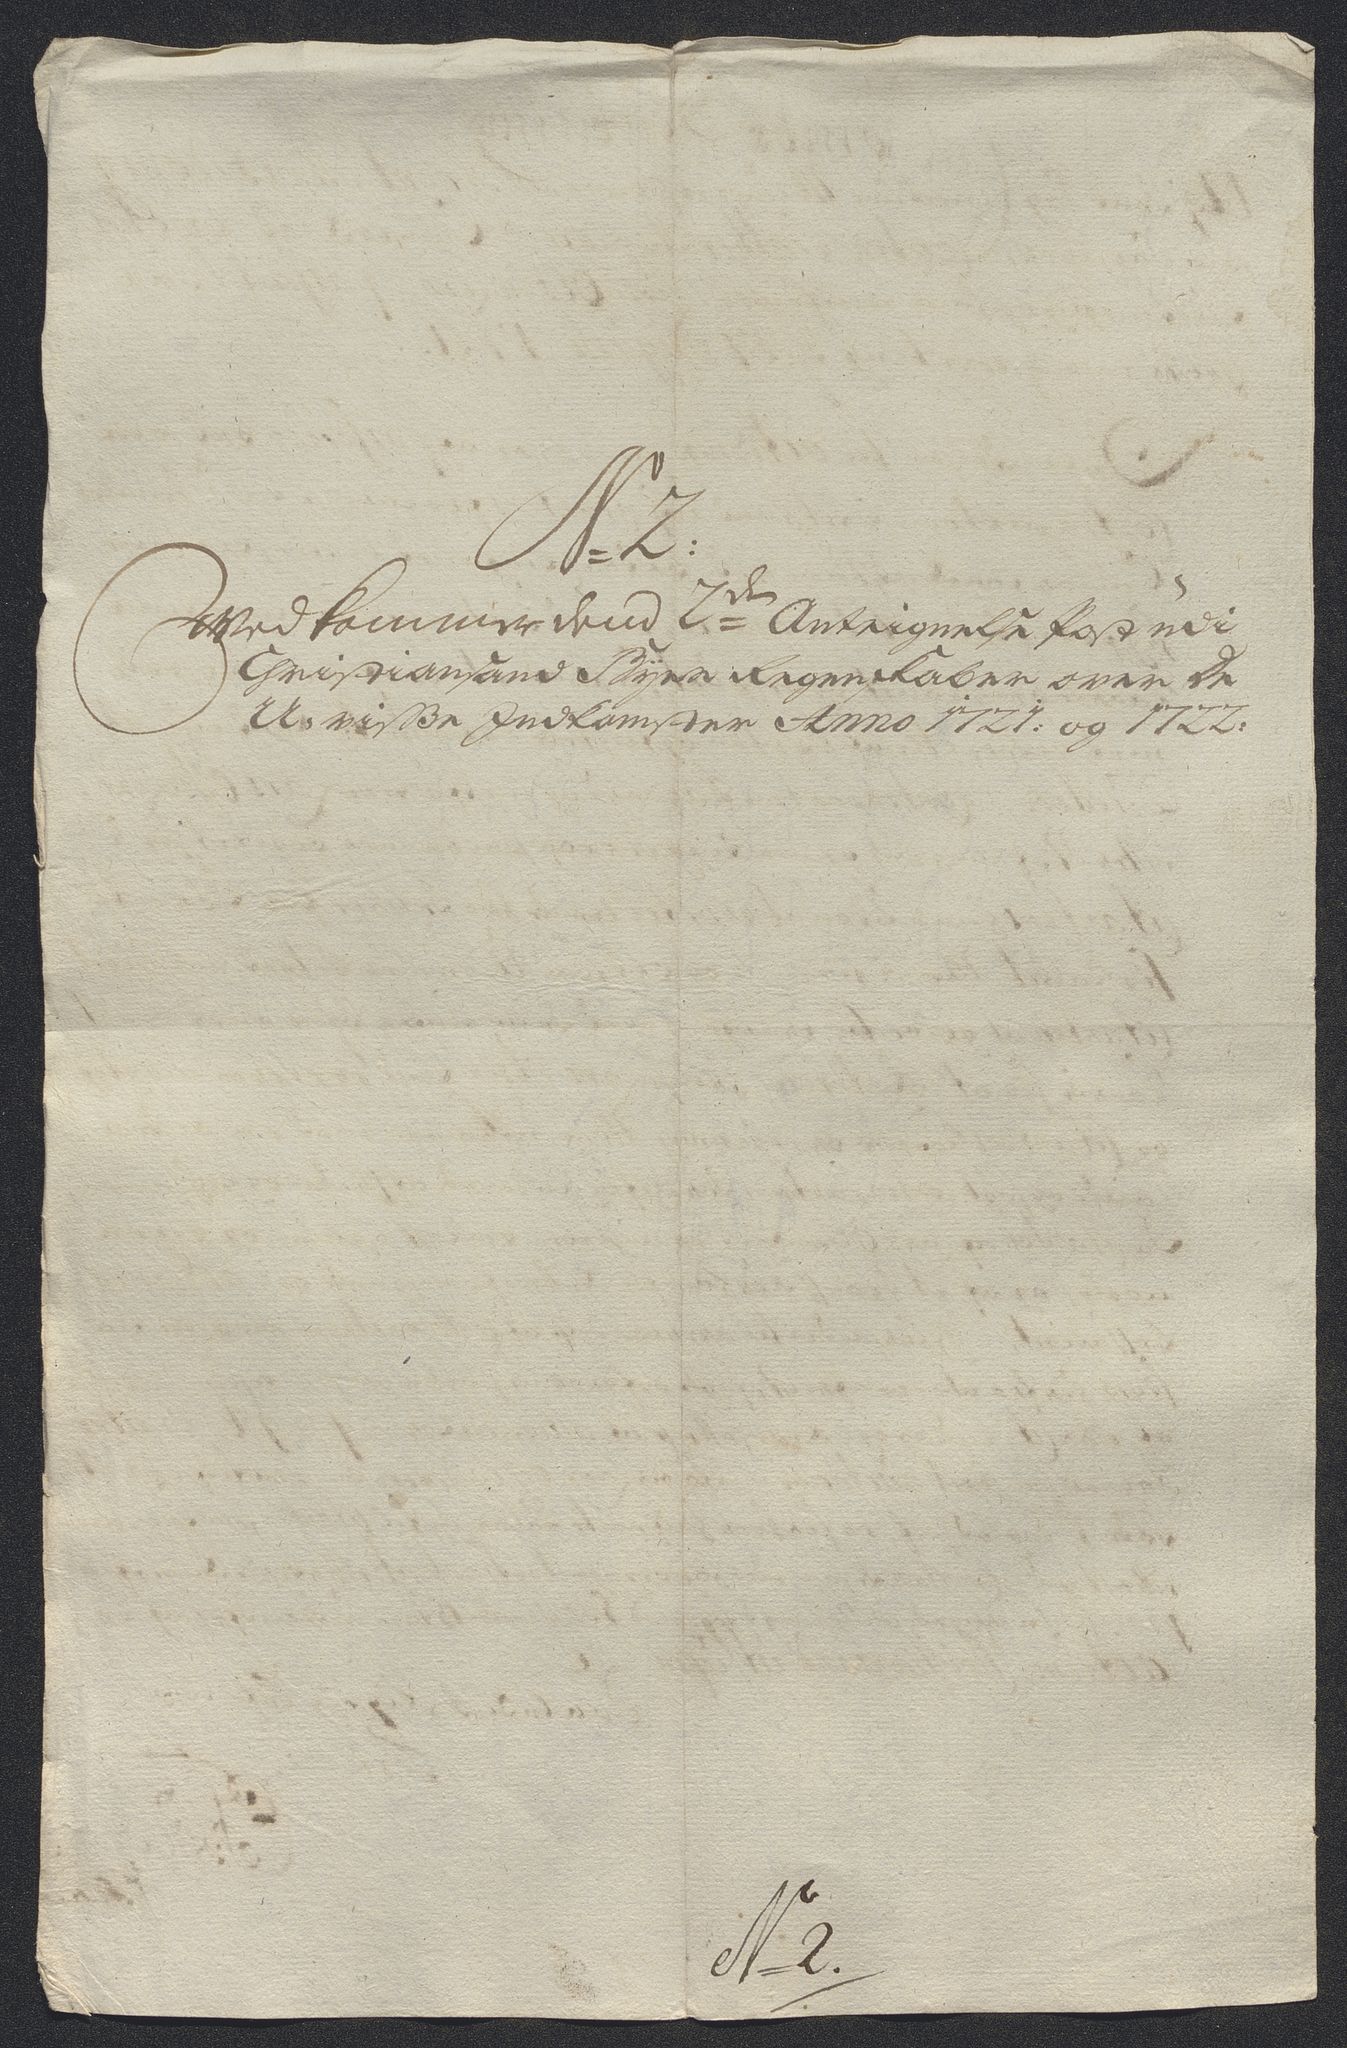 No 2:
Vedkommer dend 2den Anteignelse Post udi
Christiansand Byes Regenskaber over de
U-visse Indkomster Anno 1721: og 1722:
No 2.